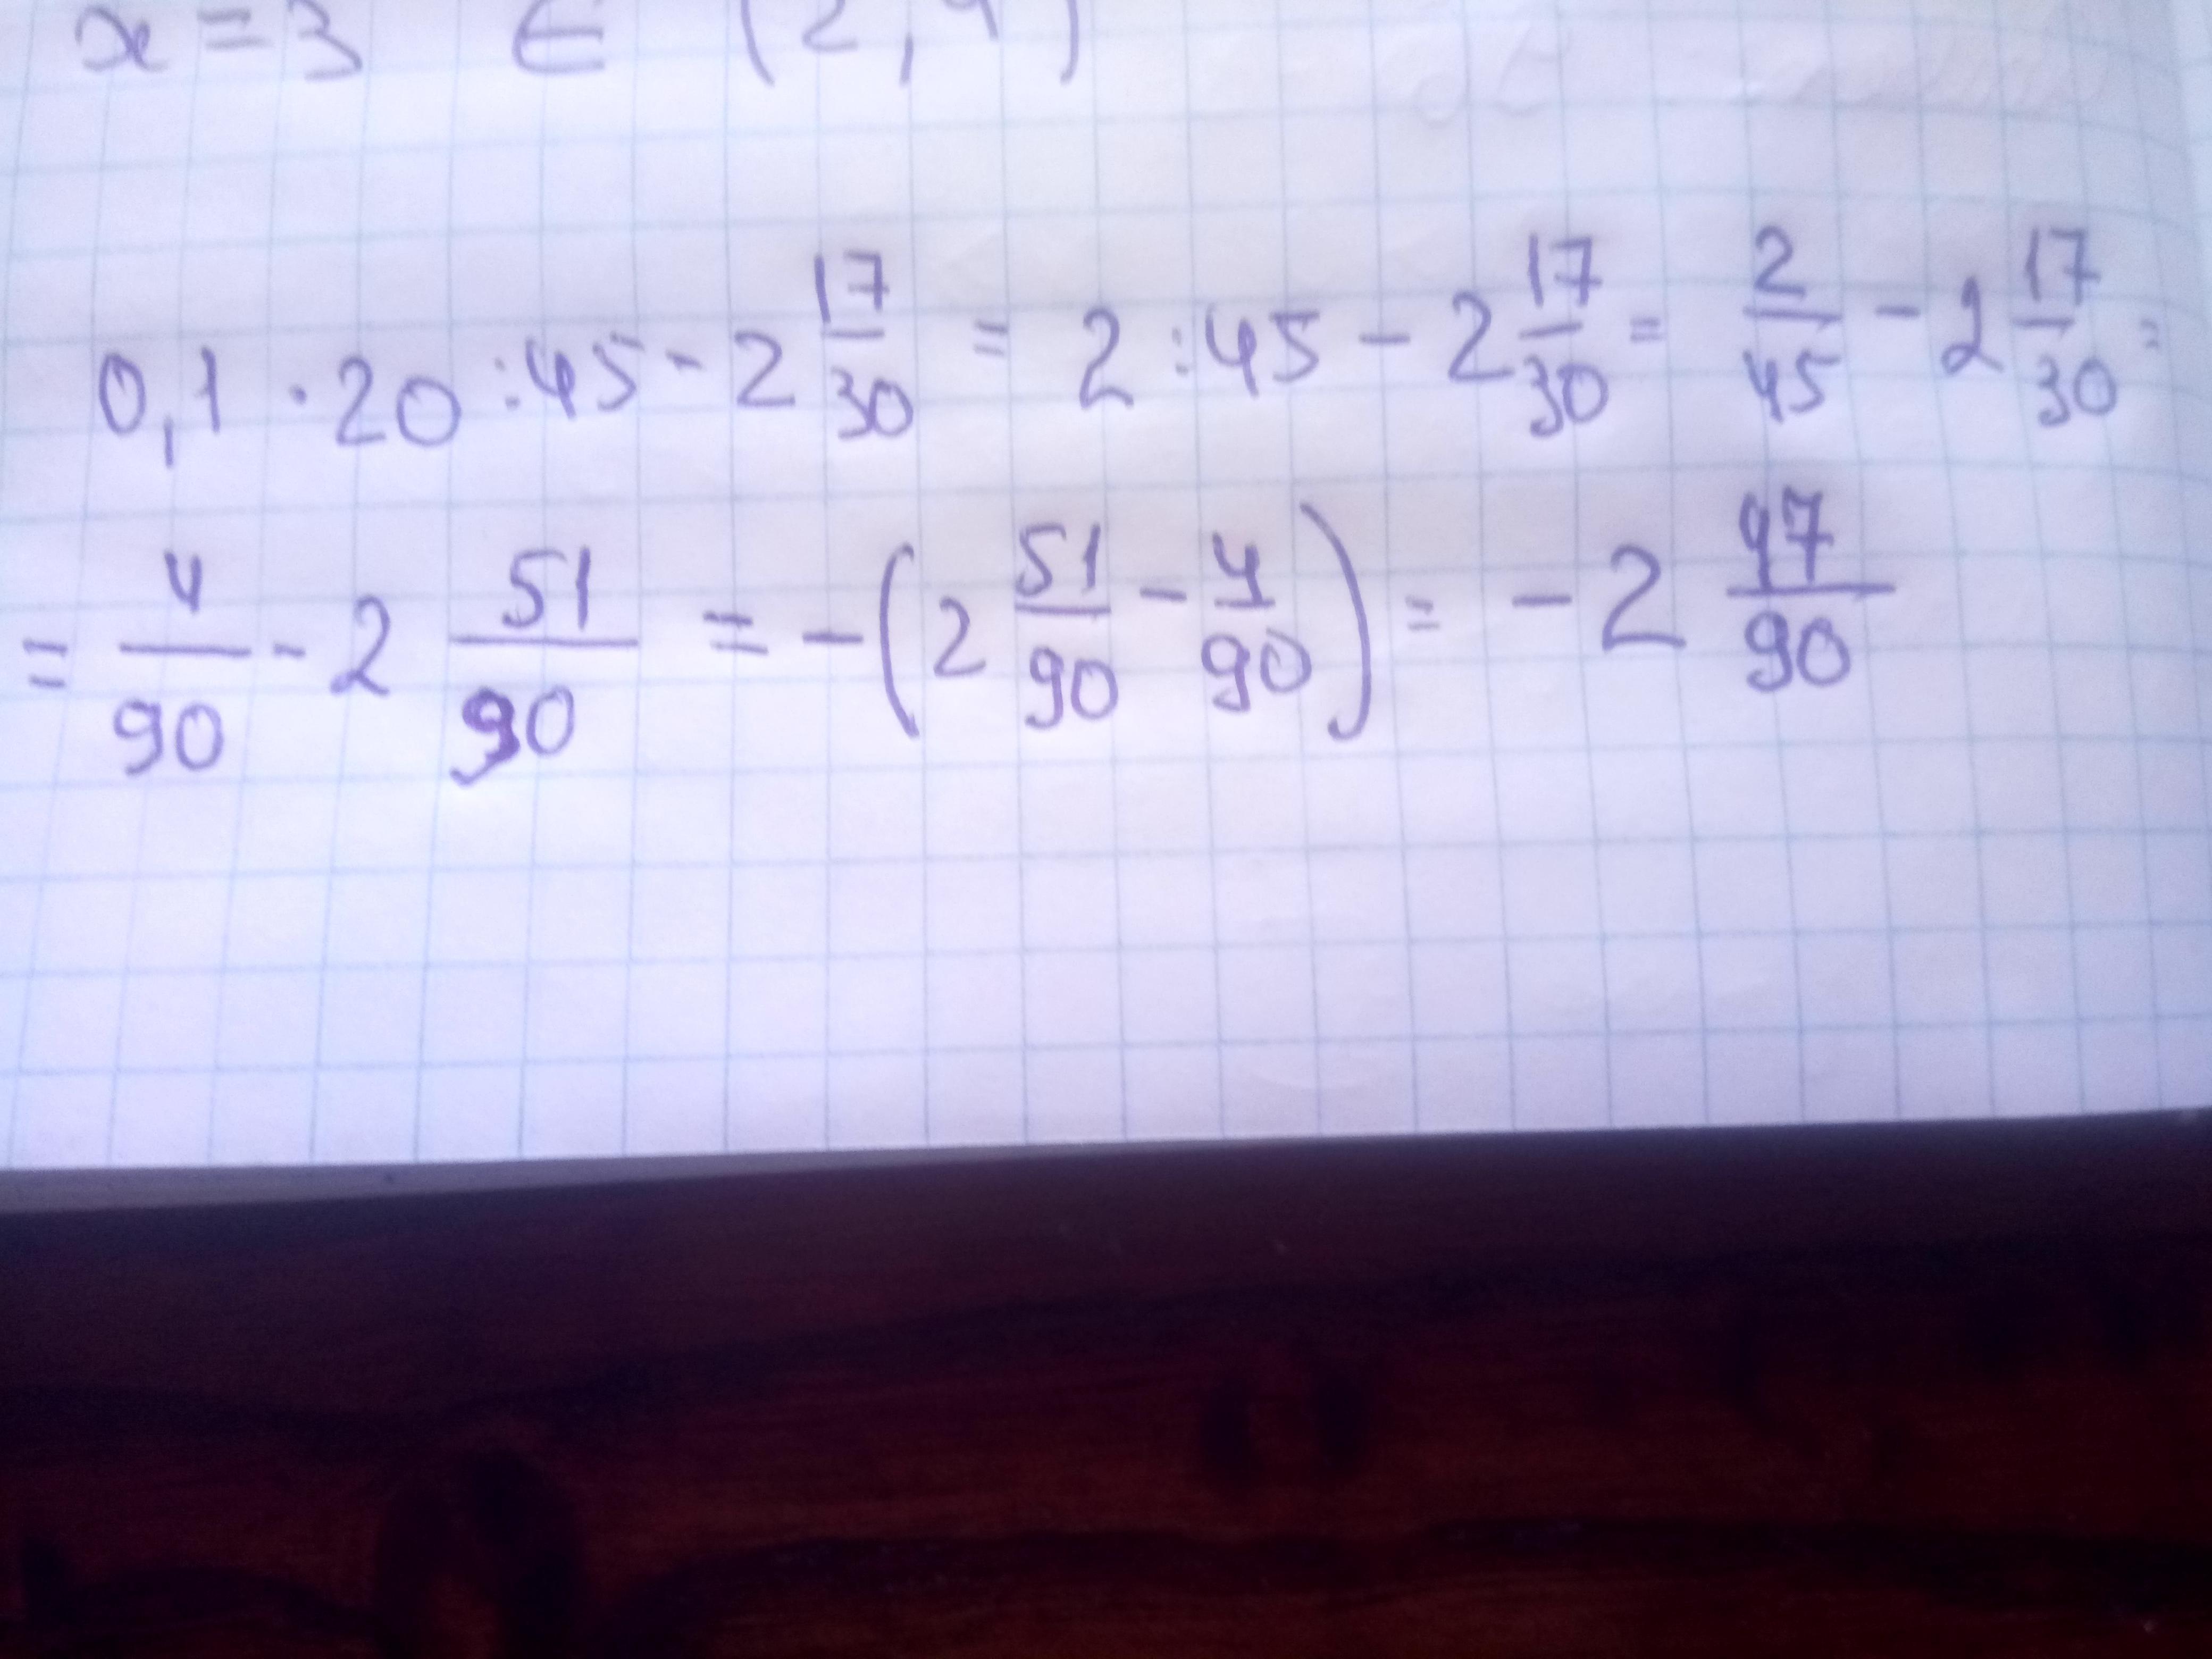 x = 3 ∈ (2, 4)
0,1 · 20 : 45 - 2 17/30 = 2 : 45 - 2 17/30 = 2/45 - 2 17/30 =
= 4/90 - 2 51/90 = - (2 51/90 - 4/90) = - 2 47/90